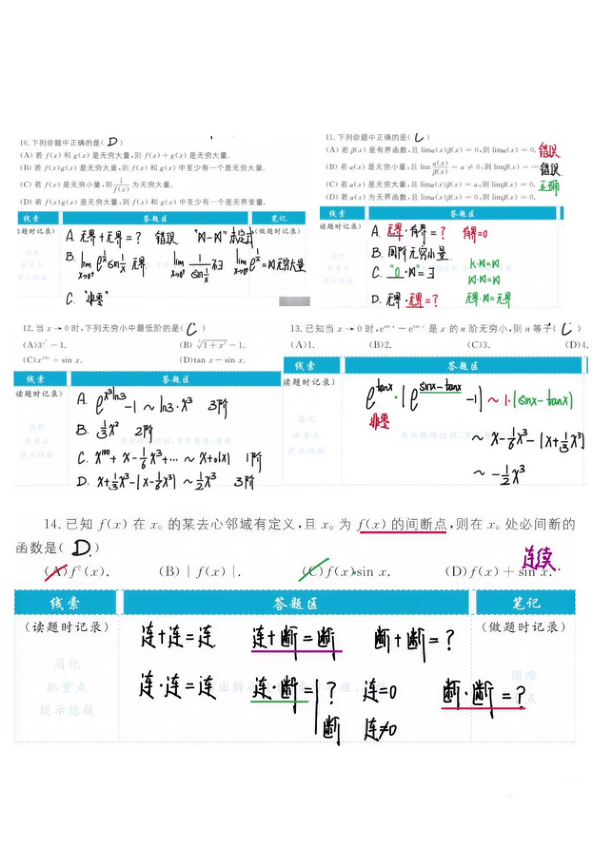 10.下列命题中正确的是( D )
(A) 若 f(x) 和 g(x) 是无穷大量,则 f(x)+g(x) 是无穷大量.
(B) 若 f(x)g(x) 是无穷大量,则 f(x) 和 g(x) 中至少有一个是无穷大量.
(C) 若 f(x) 是无穷小量,则 1/f(x) 为无穷大量.
(D) 若 f(x)g(x) 是无穷大量,则 f(x) 和 g(x) 中至少有一个是无界变量.
线索 答题区 笔记
(读题时记录) (做题时记录)
简化
抓重点
提示隐蔽
A. 无界+无界=? 错误. "∞-∞"未定式
B. lim x→0⁺ e^(1/x) sin 1/x 无界 lim x→0⁺ 1/(sin 1/x) 不∃ lim x→0⁺ e^(1/x)=∞无穷大量
C. "非零"
11.下列命题中正确的是( C )
(A) 若 β(x) 是有界函数,且 limα(x)β(x)=0,则 limα(x)=0. 错误
(B) 若 α(x) 是无穷小量,且 lim α(x)/β(x)=a≠0,则 limβ(x)=∞ 错误
(C) 若 α(x) 是无穷大量,且 limα(x)β(x)=a,则 limβ(x)=0. 正确
(D) 若 α(x) 为无界函数,且 limα(x)β(x)=0,则 limβ(x)=0.
线索 答题区
读题时记录)
A. 无界·有界=? 有界=0
B. 同阶无穷小量
C. "0·∞=∃ k·∞=∞
∞·∞=∞
D. 无界·有界=? 无界·∞=无界
12.当 x→0 时,下列无穷小中最低阶的是( C )
(A)3^(x³)-1. (B)∛(1+x²)-1.
(C)x¹⁰⁰+sin x. (D)tan x-sin x.
线索 答题区
读题时记录)
简化
抓重点
提示隐蔽
A. e^(x³ln3)-1 ~ ln3·x³ 3阶
B. 1/3x² 2阶
C. x¹⁰⁰+x-1/6x³+… ~ x+o(x) 1阶
D. x+1/3x³-(x-1/6x³) ~ 1/2x³ 3阶
13.已知当 x→0 时,e^(sin x)-e^(tan x) 是 x 的 n 阶无穷小,则 n 等于( C )
(A)1. (B)2. (C)3. (D)4.
线索 答题区
读题时记录)
简化
抓重点
提示隐蔽
e^(tanx)·(e^(sinx-tanx)-1) ~ 1·(sinx-tanx)
非零
~ x-1/6x³-(x+1/3x³)
~ -1/2x³
14.已知 f(x) 在 x₀ 的某去心邻域有定义,且 x₀ 为 f(x) 的间断点,则在 x₀ 处必间断的
函数是( D )
(A)f²(x). (B)|f(x)|. (C)f(x)·sin x. (D)f(x)+sin x. 连续
线索 答题区 笔记
(读题时记录) (做题时记录)
简化
抓重点
提示隐蔽
连+连=连 连+断=断 断+断=?
连·连=连 连·断= ? 连=0 断·断=?
断 连≠0
困难
点